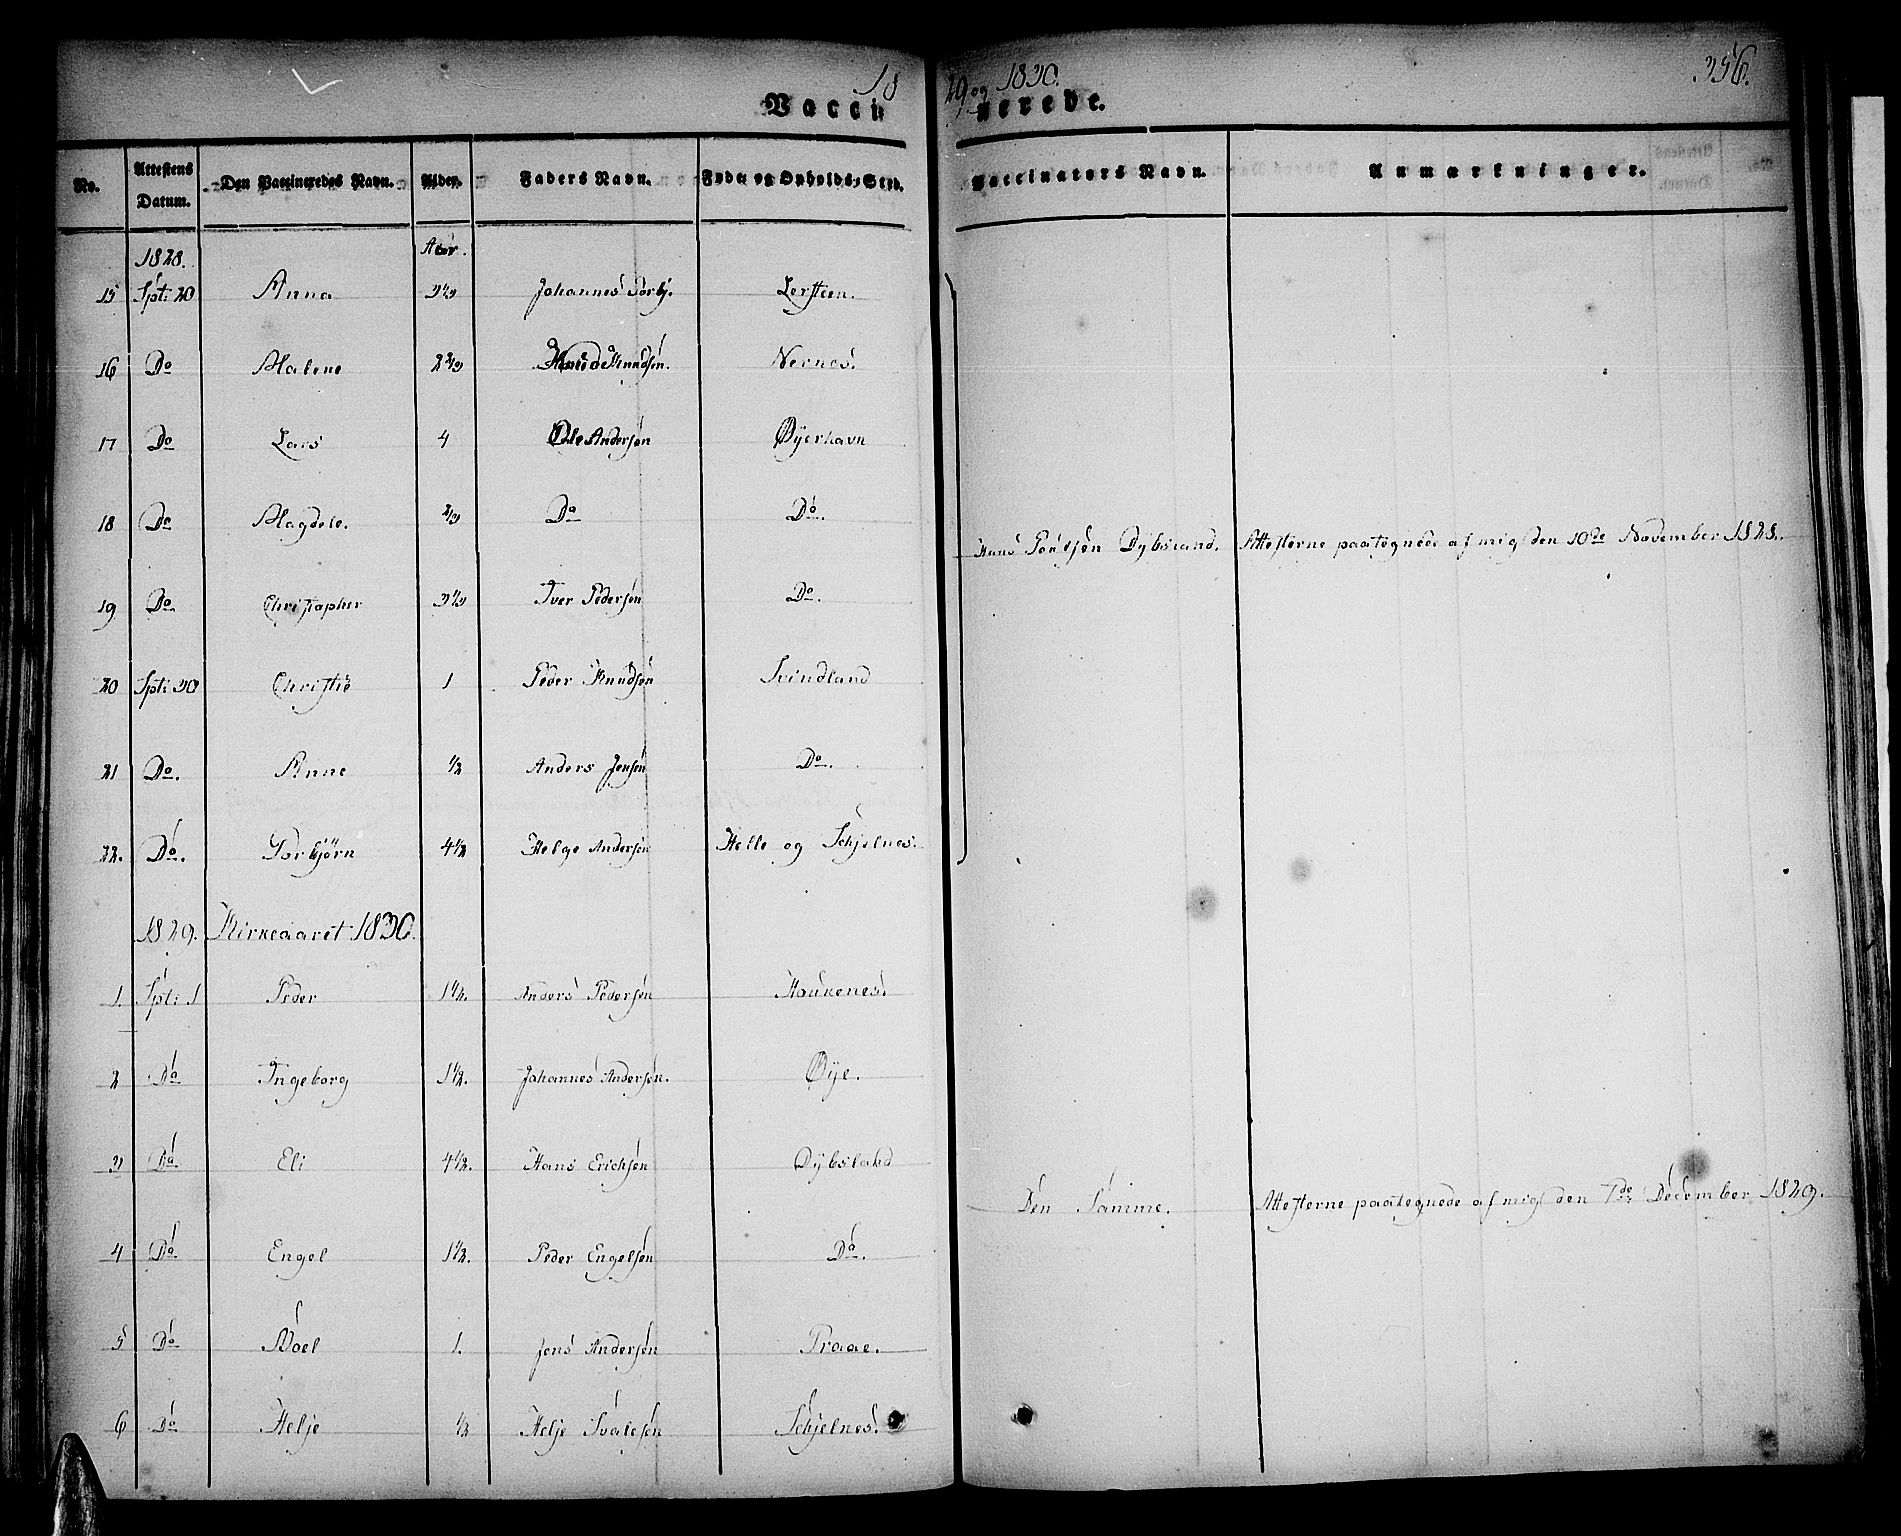 1829 og 1830. 356.
Vaccinerede.
No. Attestens Datum. Den Vaccineredes Navn. Alder. Faders Navn. Føde og Opholds-Sted. Vaccinators Navn. Anmærkninger.
1828. Aar.
15 Spt: 20 Anna 3 1/3 Johannes Torbj. Lersteen.
16 Do Malene 2 2/3 Knudsen. Nernes.
17 Do Lars 4 Ole Andersen Øyerhavn
18 Do Magdele. 2/3 Do Do.
Hans Dybsland. Attesterne paategnede af mig den 10de November 1828.
19 Do Christopher 3 1/3 Iver Pedersen Do.
20 Spt: 30 Christie 1 Peder Knudsen Svindland
21 Do. Anne 1/2 Anders Jensen Do.
22. Do. Torbjörn 4 1/2 Helge Andersen Helle og Schjelnes.
1829. Kirkeaaret 1830.
1. Spt: 1 Peder 1 1/2. Anders Pedersen Haukenes.
2 Do Ingeborg 1 1/2. Johannes Andersen. Øye.
3 Do Eli 4 1/2. Hans Erichsen Dybsland
Den Samme. Attesterne paategnede af mig den 7de December 1829.
4 Do Engel 1 1/2. Peder Engelsen Do.
5 Do Boel 1. Jens Andersen Traae.
6 Do Helje 1/2 Helje Svalesen Schjelnes.